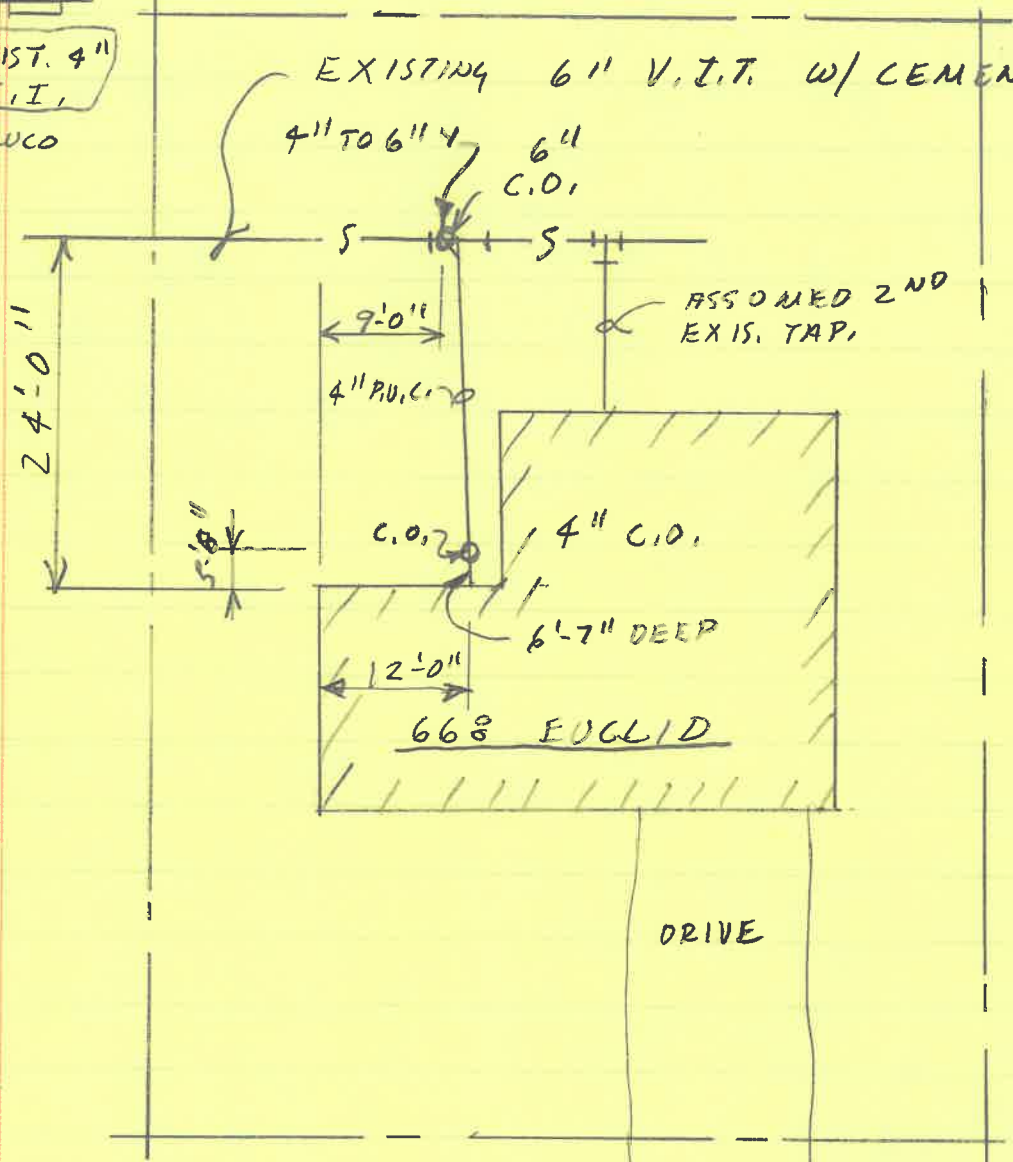 IST. 4"
.I.
EXISTING 6" V.I.T. W/ CEMEN
4" TO 6" Y
6"
C.O.
S
S
ASSOMED 2ND
EXIS. TAP.
9'-0"
4" P.V.C.
24'-0"
C.O.
4" C.O.
6'-7" DEEP
12'-0"
668 EUCLID
DRIVE